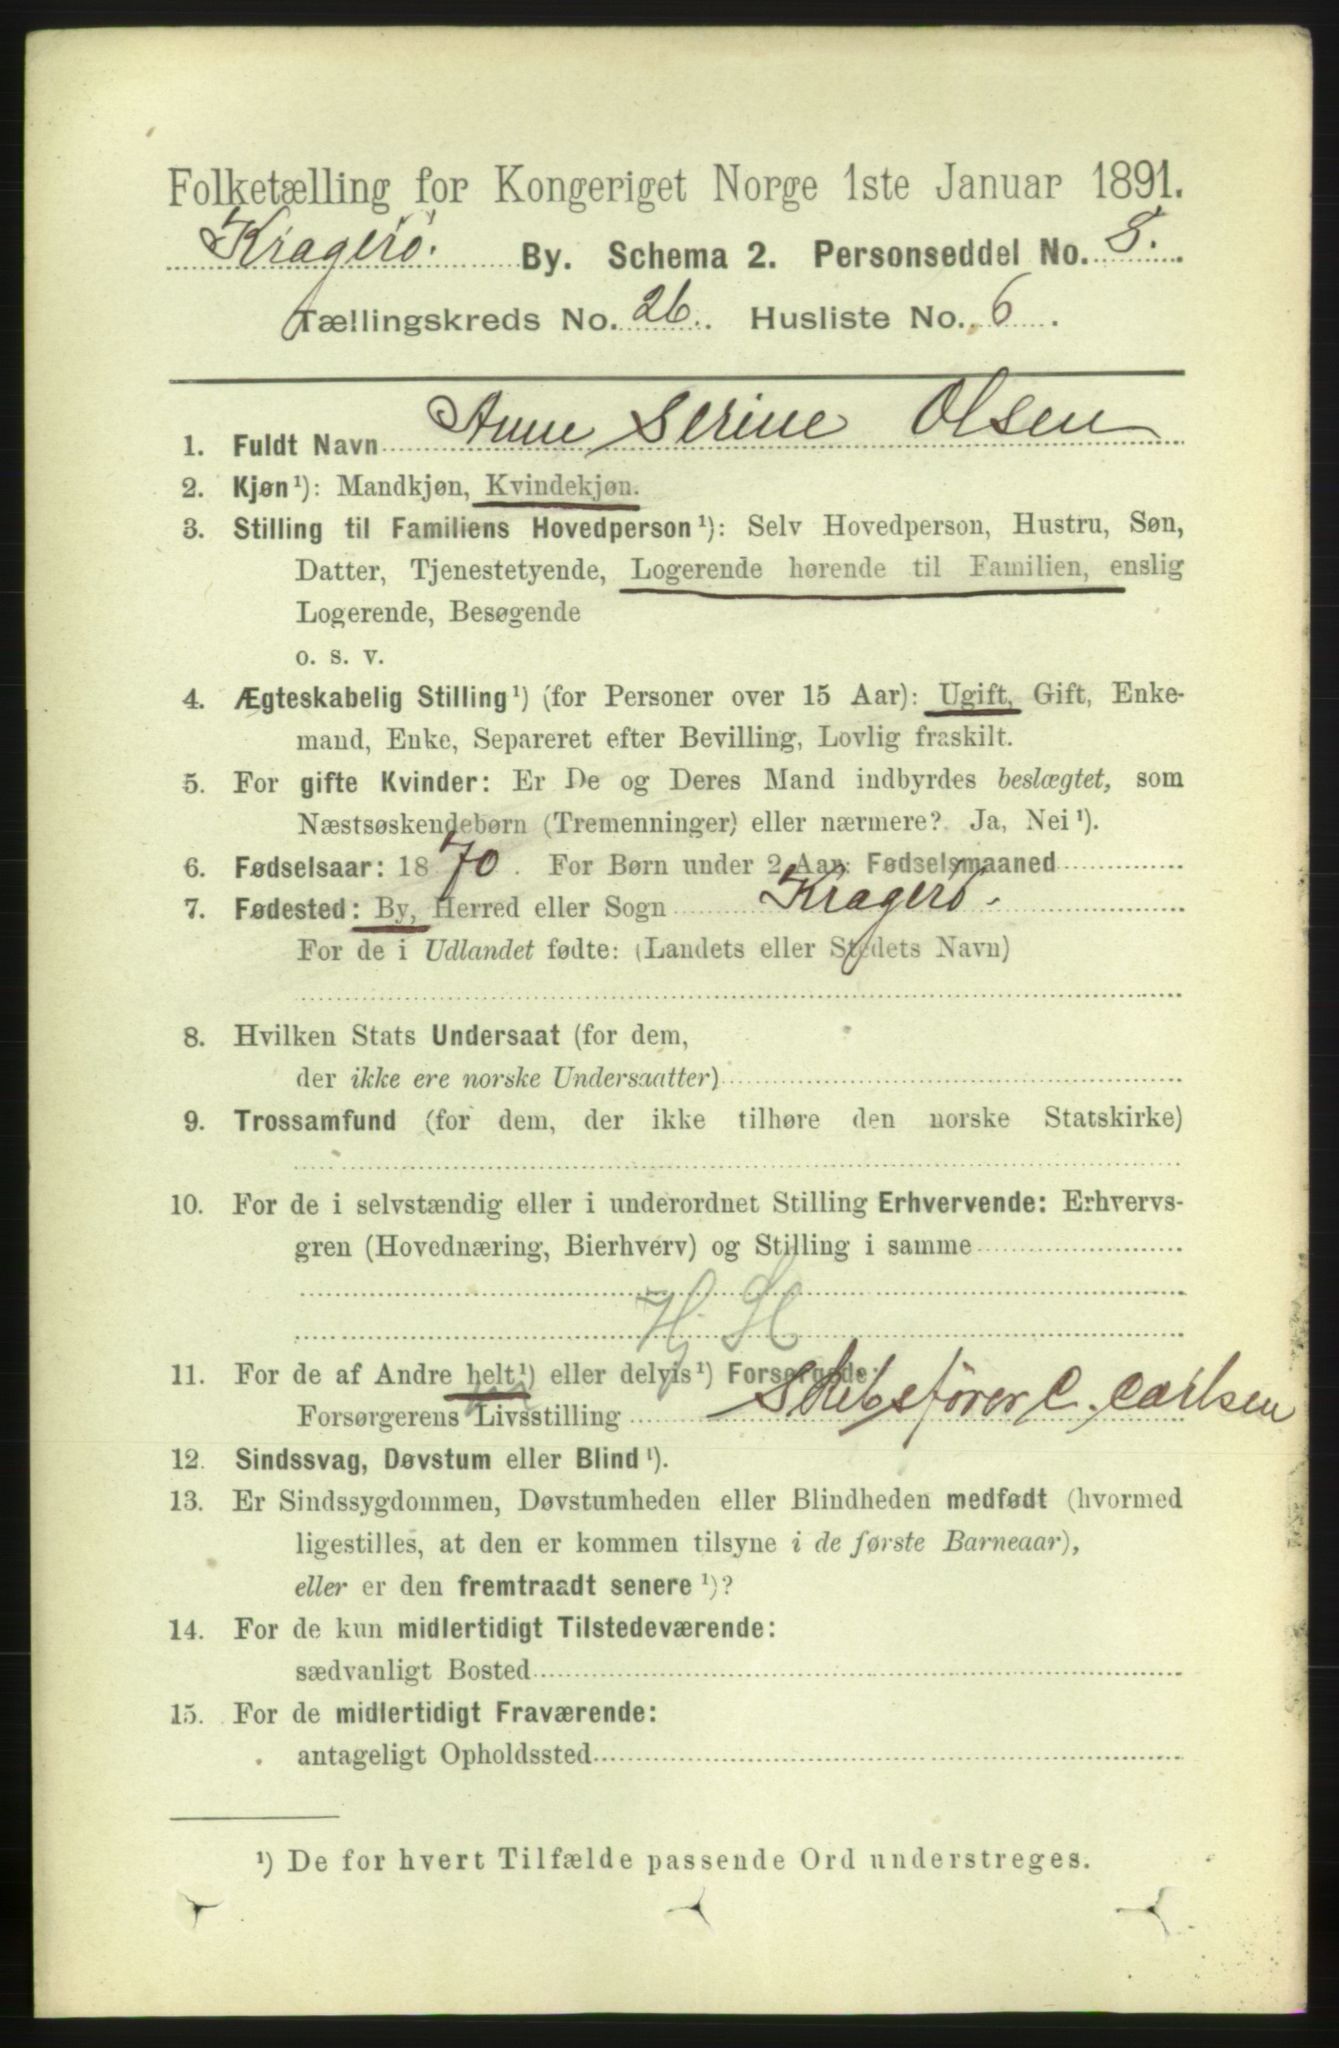 Folketælling for Kongeriget Norge 1ste Januar 1891.
Kragerö. By. Schema 2. Personseddel No. 8.
Tællingskreds No. 26. Husliste No. 6.
1. Fuldt Navn Anne Serine Olsen
2. Kjøn¹): Mandkjøn, Kvindekjøn.
3. Stilling til Familiens Hovedperson¹): Selv Hovedperson, Hustru, Søn,
Datter, Tjenestetyende, Logerende hørende til Familien, enslig
Logerende, Besøgende
o. s. v.
4. Ægteskabelig Stilling¹) (for Personer over 15 Aar): Ugift, Gift, Enke-
mand, Enke, Separeret efter Bevilling, Lovlig fraskilt.
5. For gifte Kvinder: Er De og Deres Mand indbyrdes beslægtet, som
Næstsøskendebørn (Tremenninger) eller nærmere? Ja, Nei¹).
6. Fødselsaar: 1870. For Børn under 2 Aar: Fødselsmaaned
7. Fødested: By, Herred eller Sogn Kragerö.
For de i Udlandet fødte: (Landets eller Stedets Navn)
8. Hvilken Stats Undersaat (for dem,
der ikke ere norske Undersaatter)
9. Trossamfund (for dem, der ikke tilhøre den norske Statskirke)
10. For de i selvstændig eller i underordnet Stilling Erhvervende: Erhvervs-
gren (Hovednæring, Bierhverv) og Stilling i samme
11. For de af Andre helt¹) eller delvis¹) Forsørgede:
Forsørgerens Livsstilling Skibsfører C. Carlsen
12. Sindssvag, Døvstum eller Blind¹).
13. Er Sindssygdommen, Døvstumheden eller Blindheden medfødt (hvormed
ligestilles, at den er kommen tilsyne i de første Barneaar),
eller er den fremtraadt senere¹)?
14. For de kun midlertidigt Tilstedeværende:
sædvanligt Bosted
15. For de midlertidigt Fraværende:
antageligt Opholdssted
¹) De for hvert Tilfælde passende Ord understreges.